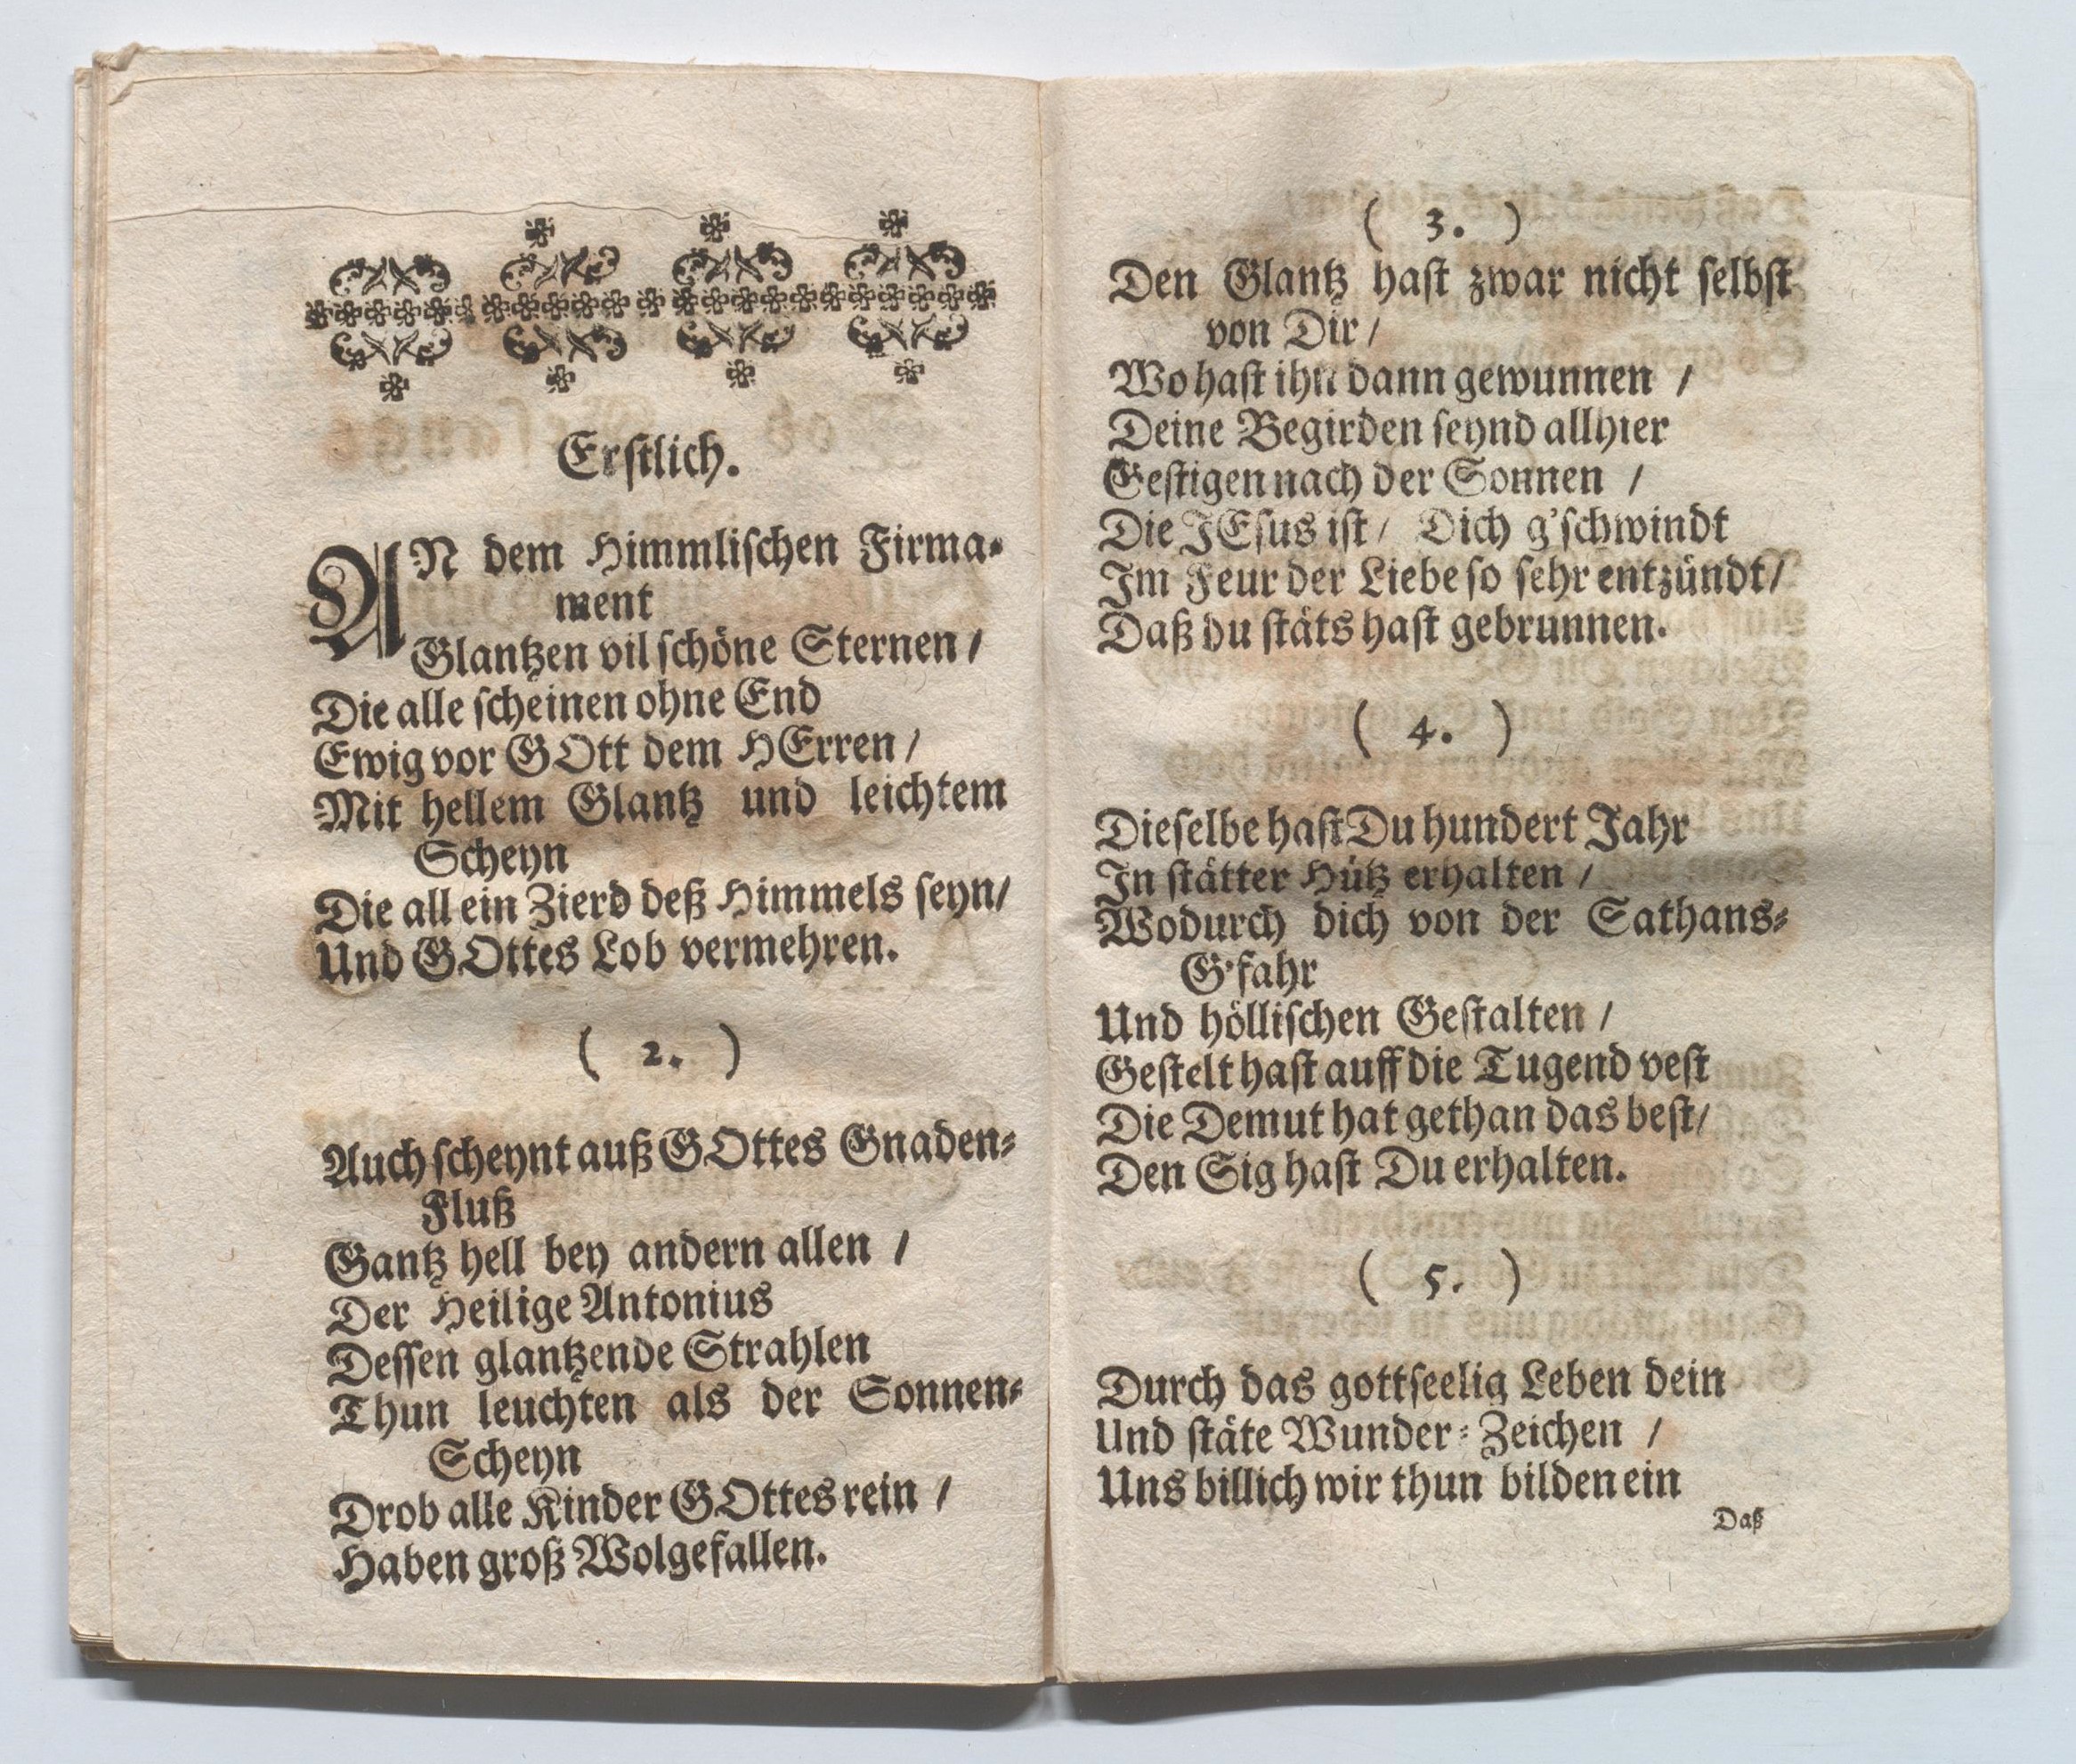 Erſtlich.
AN dem Himmliſchen Firma-
ment
Glantzen vil ſchöne Sternen /
Die alle ſcheinen ohne End
Ewig vor GOtt dem HErren /
Mit hellem Glantz und leichtem
Scheyn
Die all ein Zierd deß Himmels ſeyn/
Und GOttes Lob vermehren.
( 2. )
Auch ſcheynt auß GOttes Gnaden-
Fluß
Gantz hell bey andern allen /
Der Heilige Antonius
Deſſen glantzende Strahlen
Thun leuchten als der Sonnen-
Scheyn
Drob alle Kinder GOttes rein /
Haben groß Wolgefallen.
( 3. )
Den Glantz haſt zwar nicht ſelbſt
von Dir /
Wo haſt ihn dann gewunnen /
Deine Begirden ſeynd allhier
Geſtigen nach der Sonnen /
Die JEſus iſt / Dich g'ſchwindt
Im Feur der Liebe ſo ſehr entzündt/
Daß du ſtäts haſt gebrunnen.
( 4. )
Dieſelbe haſt Du hundert Jahr
In ſtätter Hütz erhalten /
Wodurch dich von der Sathans-
G'fahr
Und hölliſchen Geſtalten /
Geſtelt haſt auff die Tugend veſt
Die Demut hat gethan das beſt/
Den Sig haſt Du erhalten.
( 5. )
Durch das gottſeelig Leben dein
Und ſtäte Wunder-Zeichen /
Uns billich wir thun bilden ein
Daß